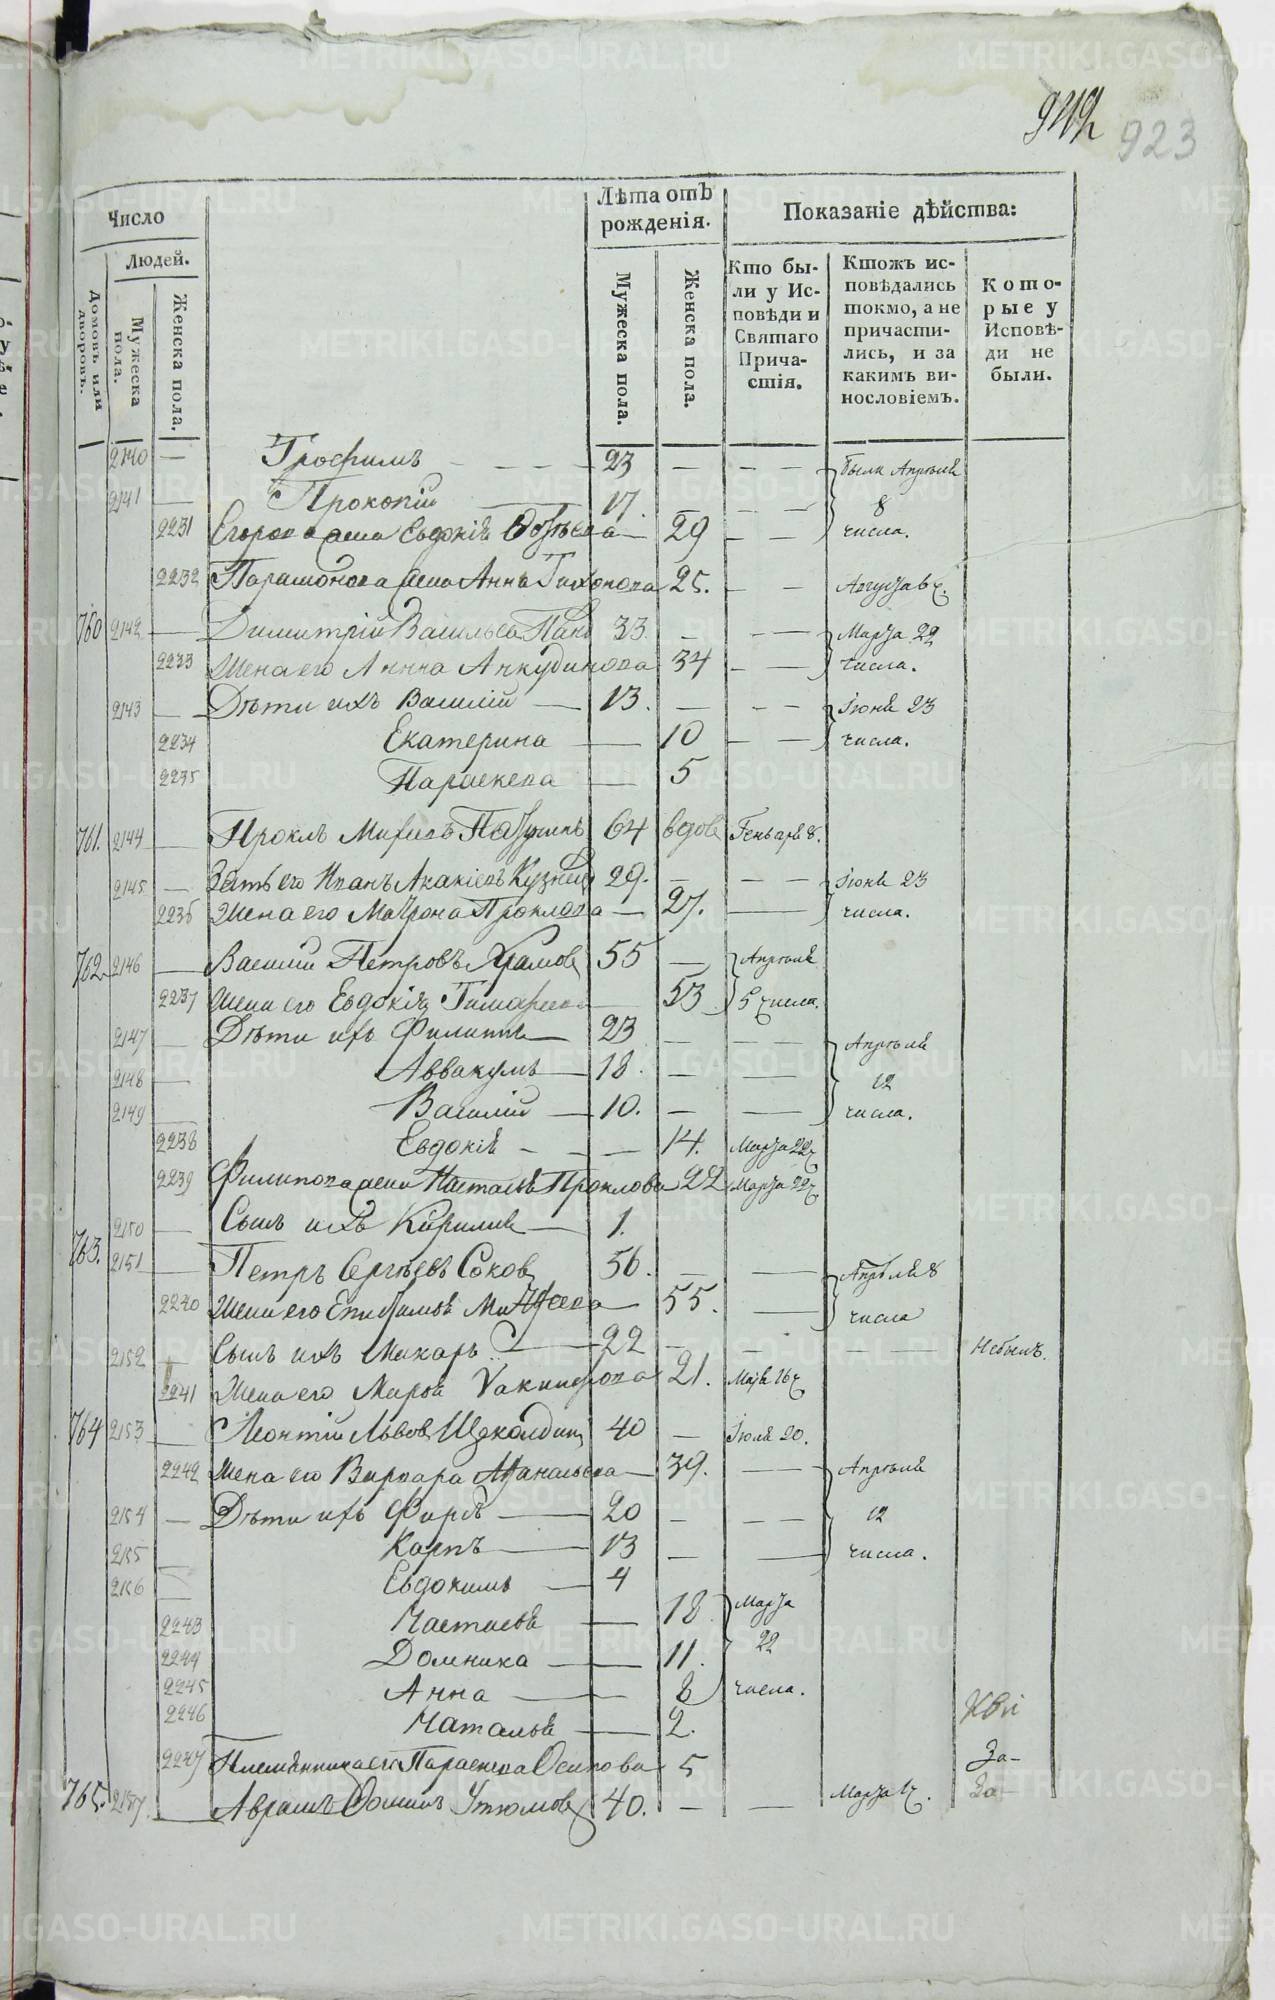 942 923
Число
Людей.
Домовъ или дворовъ.
Мужеска пола.
Женска пола.
Лѣта отъ рожденія.
Мужеска пола.
Женска пола.
Показаніе дѣйства:
Кто бы-
ли у Ис-
повѣди и
Святаго
Прича-
стія.
Ктожъ ис-
повѣдались
токмо, а не
причасти-
лись, и за
какимъ ви-
нословіемъ.
Кото-
рые у
Исповѣ-
ди не
были.
2140 — Трофимъ 23 — — — были Апрѣля
2141 — Прокопій 17. — — — 8
2231 Егорова жена Евдокія 29 — — числа.
2232 Парамонова жена Анна Тихонова 25. — — Августа 6 ч.
760 2142 — Димитрій Васильевъ 33 — — — Марта 22
2233 Жена его Анна Анкудинова 34 — — числа.
2143 — Дѣти ихъ Василій — 13. — — — Іюня 23
2234 Екатерина — 10 — — числа.
2235 Параскева — 5
761. 2144 — Проклъ 64 вдовъ Генваря 8.
2145 — Зять его Иванъ Акакіевъ 29. — — — Іюня 23
2236 Жена его Матрона Проклова — 27. — числа.
762 2146 — Василій Петровъ Храмовъ 55 — Апрѣля
2237 Жена его Евдокія 53 5 числа.
2147 — Дѣти ихъ Филиппъ — 23 — — — Апрѣля
2148 — Аввакумъ — 18. — — 12
2149 — Василій — 10. — — числа.
2238 Евдокія — — — 14. Марта 22 ч
2239 Филипова жена Настасья Проклова 22 Марта 22 ч
2150 — Сынъ ихъ Кирилъ — 1.
763. 2151 — Петръ Сергѣевъ Соковъ 56. — — Апрѣля 8
2240 Жена его — 55. — числа
2152 — Сынъ ихъ Макаръ — 22 — — — — Небылъ.
2241 Жена его Марѳа 21. Маія 16 ч
764 2153 — Леонтій Львовъ Щеколдинъ 40 — Іюля 20.
2242 Жена его Варвара Аѳанасьева — 39. — Апрѣля
2154 — Дѣти ихъ Фирсъ — 20 — — — 12
2155 — Карпъ — 13 — — числа.
2156 — Евдокимъ — 4
2243 Настасья — 18 Марта
2244 Домника — 11. 22
2245 Анна — 8 числа.
2246 Наталья — 2.
2247 Племянница его Параскева Осипова 5 За-
765. 2157. — Аврамъ Ѳоминъ Утюмовъ 40. — — Марта 1 ч. За-